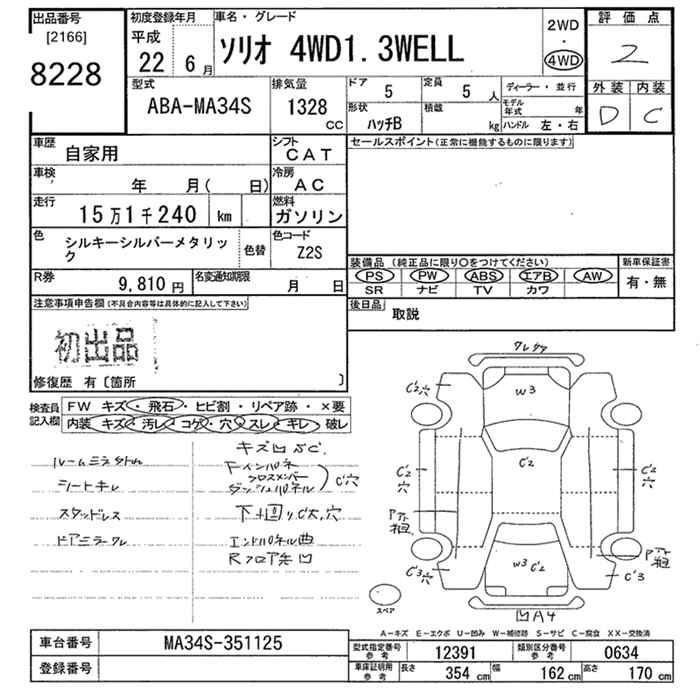 出品番号
[2166]
8228
初度登録年月
平成
22 6月
車名・グレード
ソリオ 4WD1.3WELL
2WD
・
4WD
評価点
2
外装 内装
D C
型式
ABA-MA34S
排気量
1328
CC
ドア
5
定員
5 人
形状
ハッチB
積載
kg
ディーラー・並行
モデル年式 年
ハンドル 左・右
車歴
自家用
シフト
CAT
セールスポイント(正常に機能するものに限ります)
車検
年 月( 日)
冷房
AC
走行
15万1千240 km
燃料
ガソリン
色
シルキーシルバーメタリック
色替
色コード
Z2S
装備品 (純正品に限り○をつけてください)
PS PW ABS エアB AW
SR ナビ TV カワ
新車保証書
有・無
R券
9,810 円
名変通知期限
月 日
後日品
取説
注意事項申告欄(不具合内容等は具体的に記入して下さい)
初出品
修復歴 有〔箇所 〕
検査員記入欄
FW キズ・飛石・ヒビ割・リペア跡・×要
内装 キズ・汚レ・コゲ・穴・スレ・キレ・破レ
シートキレ
スタッドレス
ドアミラークレ
キズ凹サC.
ダッシュパネル
クロスメンバー
C穴
下廻りC大,穴
エンドパネル曲
Rフロア先凹
W3
C'2穴
C'2
C'2
穴
C'2
穴
C'3穴
W3 C'2
C'3
凹A4
スペア
A-キズ E-エクボ U-凹み W-補修跡 S-サビ C-腐食 XX-交換済
車台番号
MA34S-351125
登録番号
型式指定番号
参考
12391
類別区分番号
参考
0634
車庫証明用
参考
長さ 354 cm 幅 162 cm 高さ 170 cm